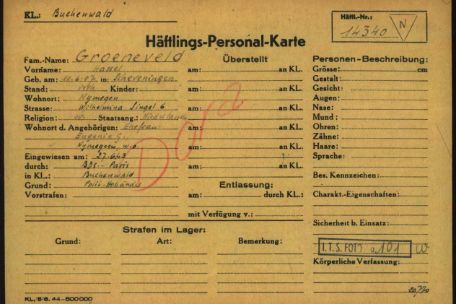 KL.: Buchenwald
Häftl.-Nr.:
14340
N
Häftlings-Personal-Karte
Fam.-Name: Groeneveld
Vorname:
Geb. am in Scheveningen
Stand: Kinder:
Wohnort: Nymegen
Strasse: Wilhelmina Singel 6
Religion: Staatsang.:
Wohnort d. Angehörigen: Ehefrau
Eugenie G.
Nymegen, w.o.
Eingewiesen am:
durch: BDS. Paris
in KL.: Buchenwald
Grund:
Vorstrafen:
Überstellt
am: an KL.
am: an KL.
am: an KL.
am: an KL.
am: an KL.
am: an KL.
Entlassung:
am: durch KL.:
mit Verfügung v.:
Dora
Personen-Beschreibung:
Grösse: cm
Gestalt:
Gesicht:
Augen:
Nase:
Mund:
Ohren:
Zähne:
Haare:
Sprache:
Bes. Kennzeichen:
Charakt.-Eigenschaften:
Sicherheit b. Einsatz:
I.T.S. FOTO
Körperliche Verfassung:
Strafen im Lager:
Grund: Art: Bemerkung:
KL/5/6. 44-500000